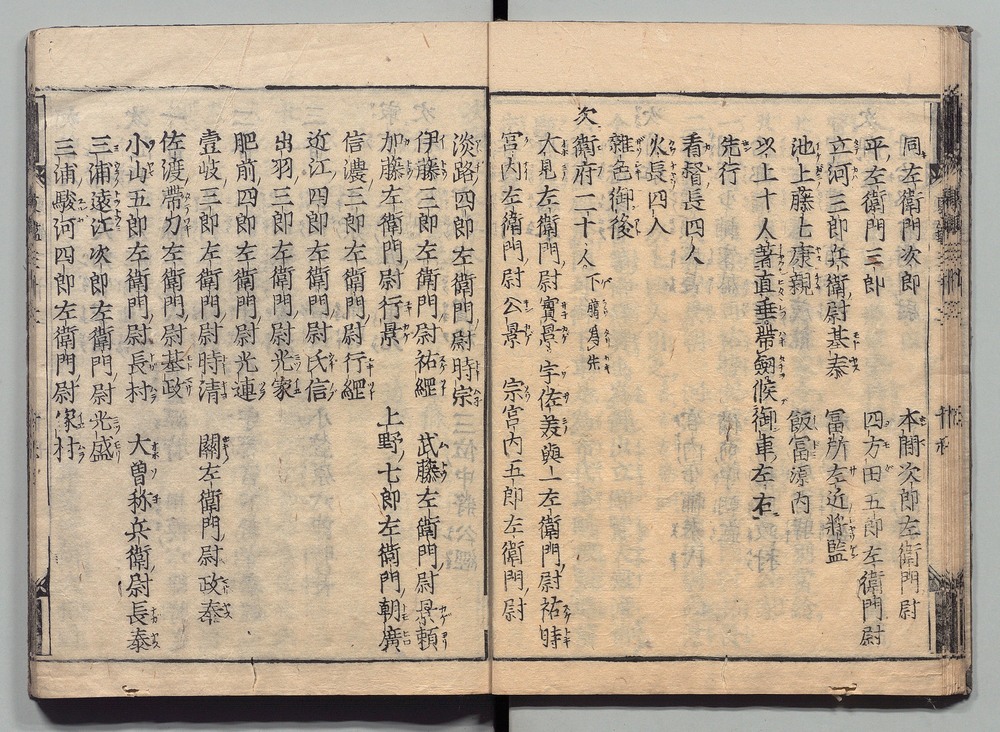 同左衛門次郎　本間次郎左衛門尉
平左衛門三郎　四方田五郎左衛門尉
立河三郎兵衛尉基泰　冨所左近將監
池上藤七康親　飯冨源内
以上十人著直垂帶劔候御車左右
先行
看督長四人
火長四人
雜色御後
次
衛府二十人下﨟為先
大見左衛門尉實景　宇佐美與一左衛門尉祐時
宮内左衛門尉公景　宗宮内五郎左衛門尉
淡路四郎左衛門尉時宗
伊藤三郎左衛門尉祐經　武藤左衛門尉景頼
加藤左衛門尉行景　上野七郎左衛門朝廣
信濃三郎左衛門尉行經
近江四郎左衛門尉氏信
出羽三郎左衛門尉光家
肥前四郎左衛門尉光連
壹岐三郎左衛門尉時清　關左衛門尉政泰
佐渡帶刀左衛門尉基政
小山五郎左衛門尉長村　大曽祢兵衛尉長泰
三浦遠江次郎左衛門尉光盛
三浦駿河四郎左衛門尉家村